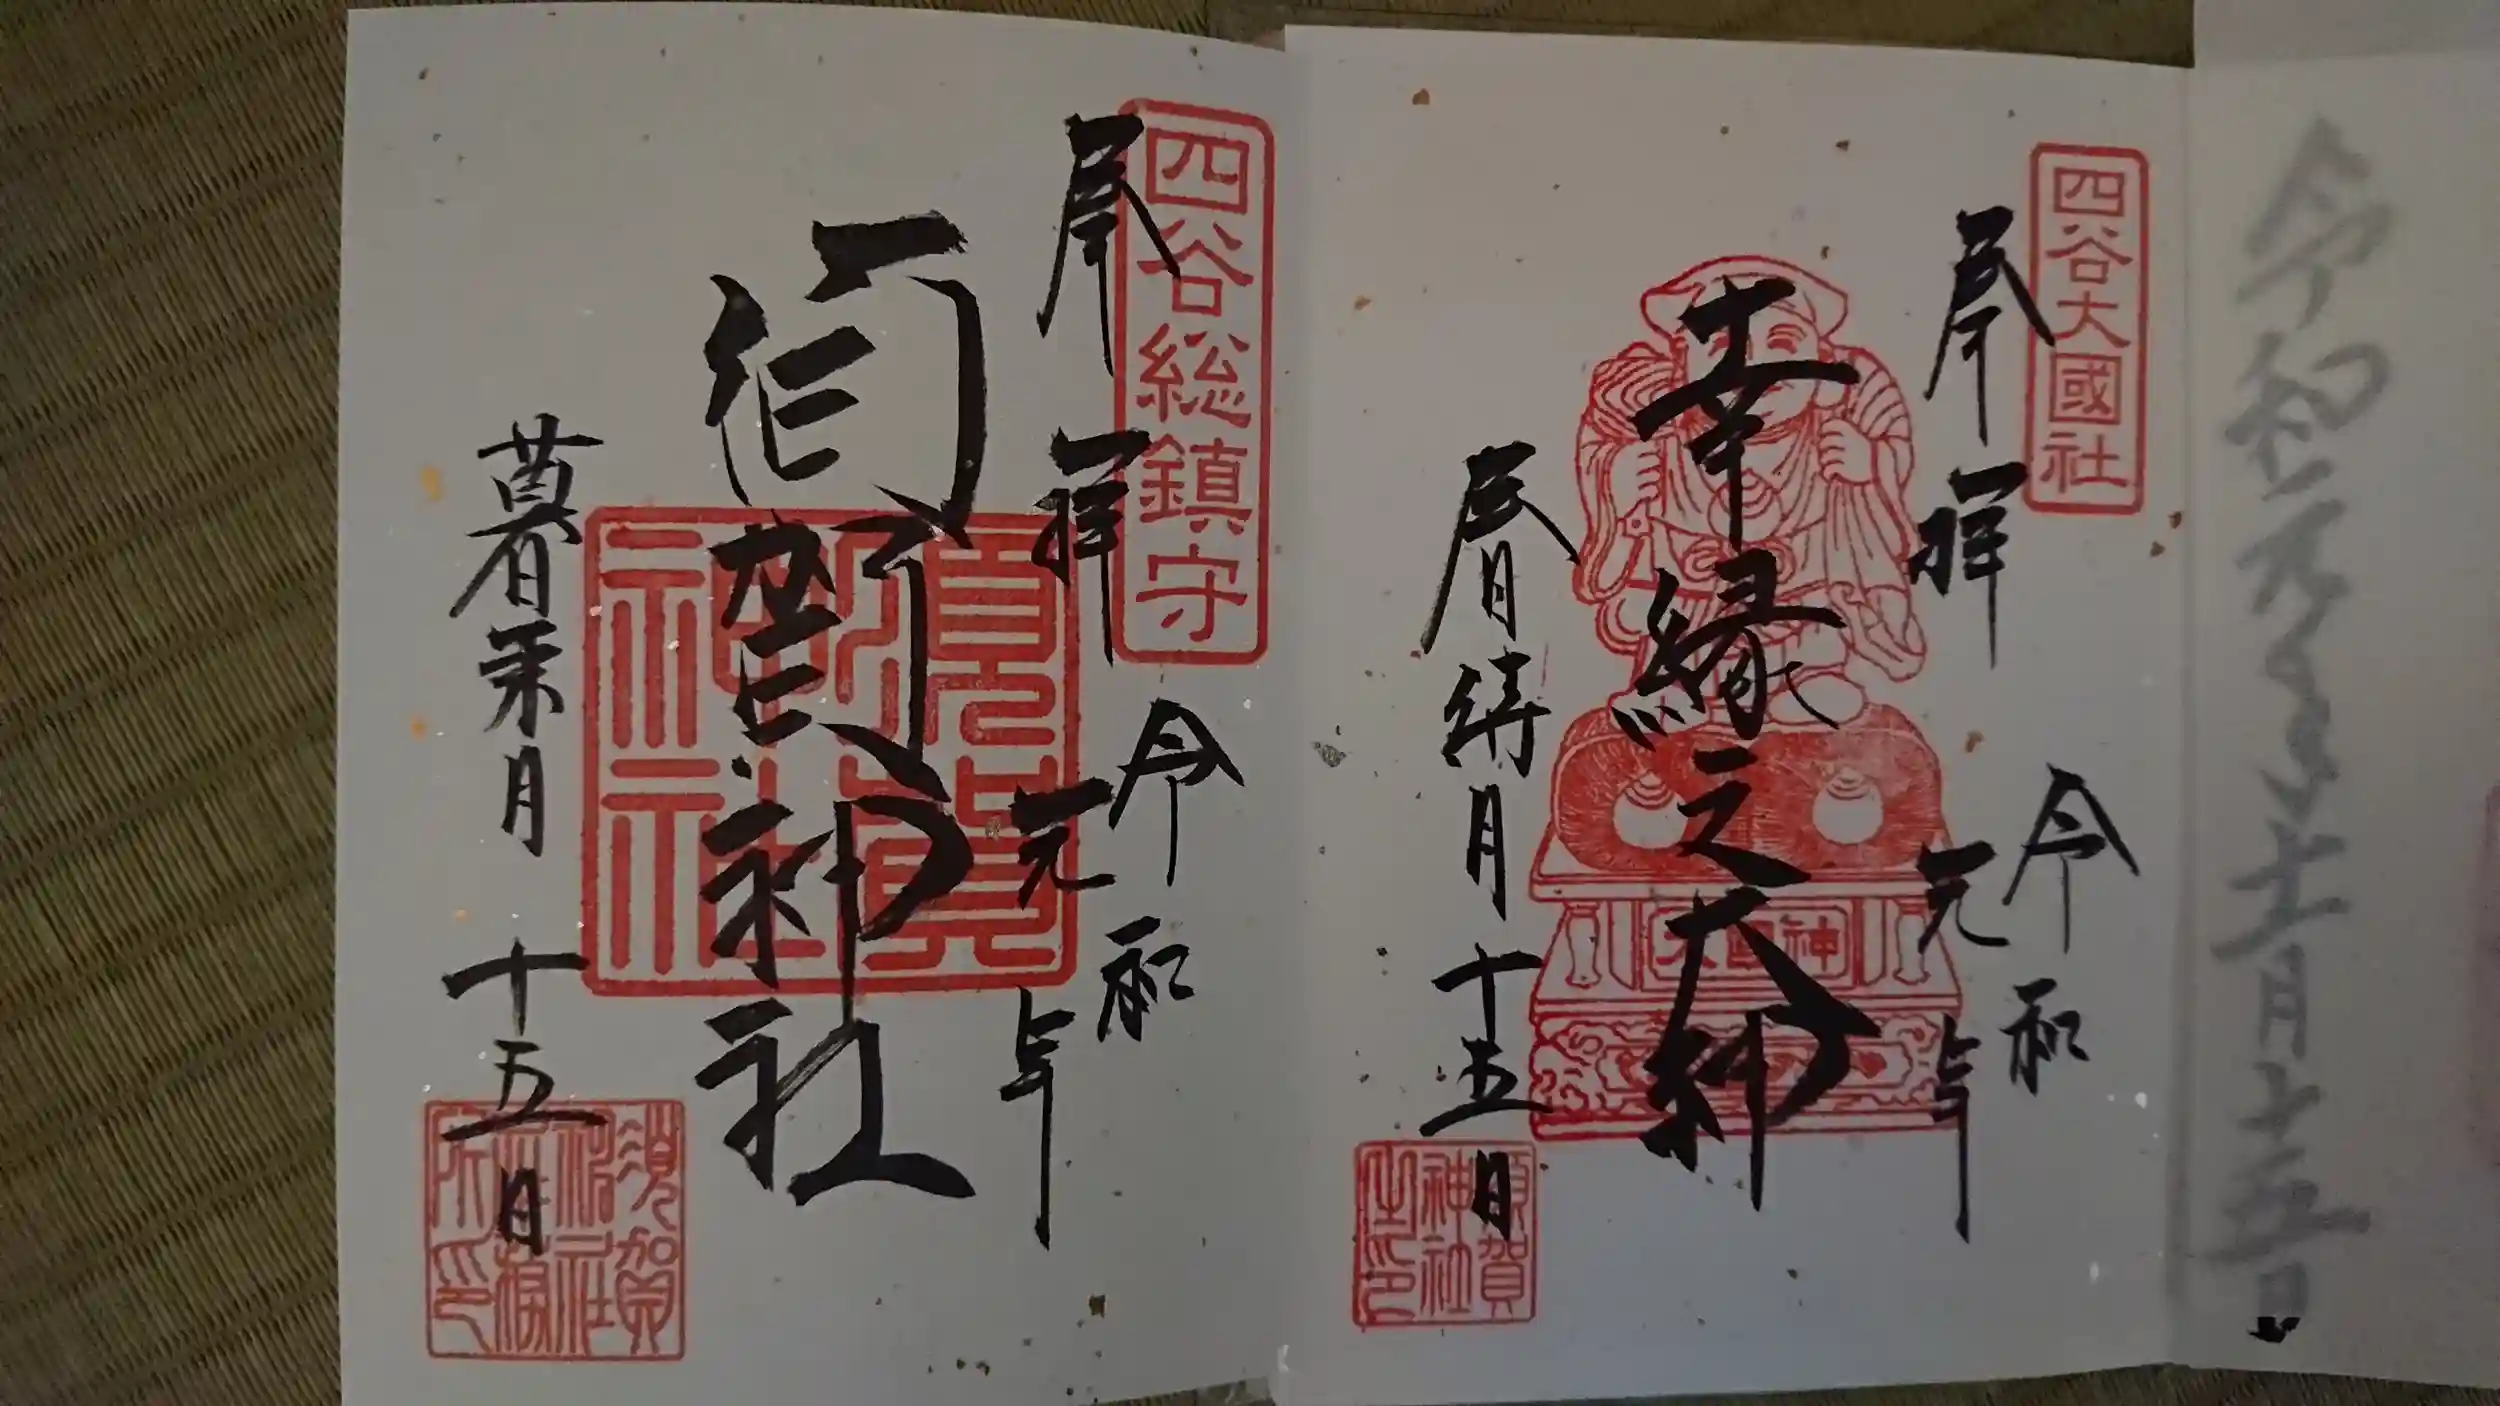 令和元年十二月十五日
四谷大國社
奉拝
令和
元年
幸縁之大神
神国大
春待月十五日
須賀神社之印
四谷総鎮守
奉拝
令和
元年
須賀神社
須賀神社
暮来月十五日
須賀神社社務所印